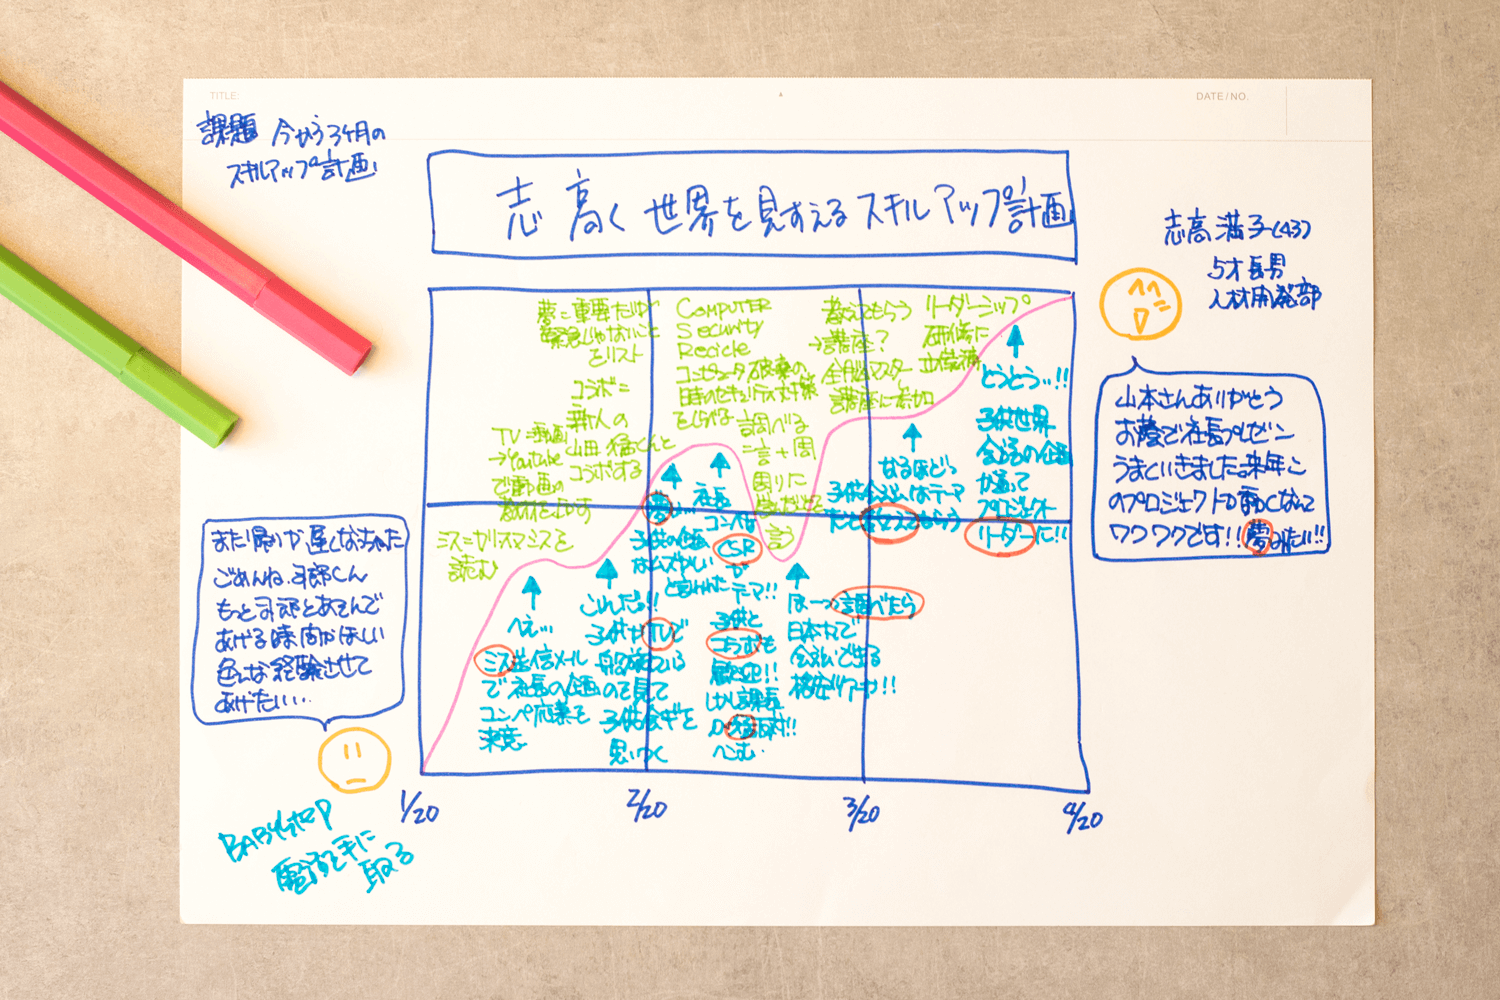 TITLE.
DATE/NO.
課題 今から3ヶ月の
スキルアップ計画
志高く世界を見すえるスキルアップ計画
志高満子(43)
5才長男
人材開発部
山本さんありがとう
お蔭で社長プレゼン
うまくいきました。来年こ
のプロジェクトが動くなんて
ワクワクです!!夢みたい!!
夢=重要だけど
緊急じゃないこと
をリスト
コラボ=
新人の
山田 猛くんと
コラボする
TV=動画
→Youtube
で動画の
ミス=カリスマミスを
読む
COMPUTER
Security
Recicle
コンピュータ破棄の
時のセキュリティ対策
をしらべる
調べる
=言+周
周りに
言う
教えてもらう
→講座?
全脳マスター
講座に参加
リーダーシップ
研修に
とうとう…!!
子供世界
会議の企画
が通って
プロジェクト
リーダーに!!
なるほどっ
子供会議はテーマ
夢…
子供の企画
はムズかしい
と言われた
社長
コンペは
CSR
が
テーマ!!
子供と
コラボも
歓迎!!
しかし課長
が猛反対!!
へこむ…
ほーっ調べたら
日本だけで
へえ…
ミス送信メール
で社長の企画
コンペ応募を
決意
これだっ!!
子供がTVで
のを見て
子供会議を
思いつく
1/20
2/20
3/20
4/20
また帰りが遅くなっちゃった
ごめんね。司郎くん
もっと司郎とあそんで
あげる時間がほしい
色んな経験させて
あげたい…
BABYSteP
電話を手に
取る